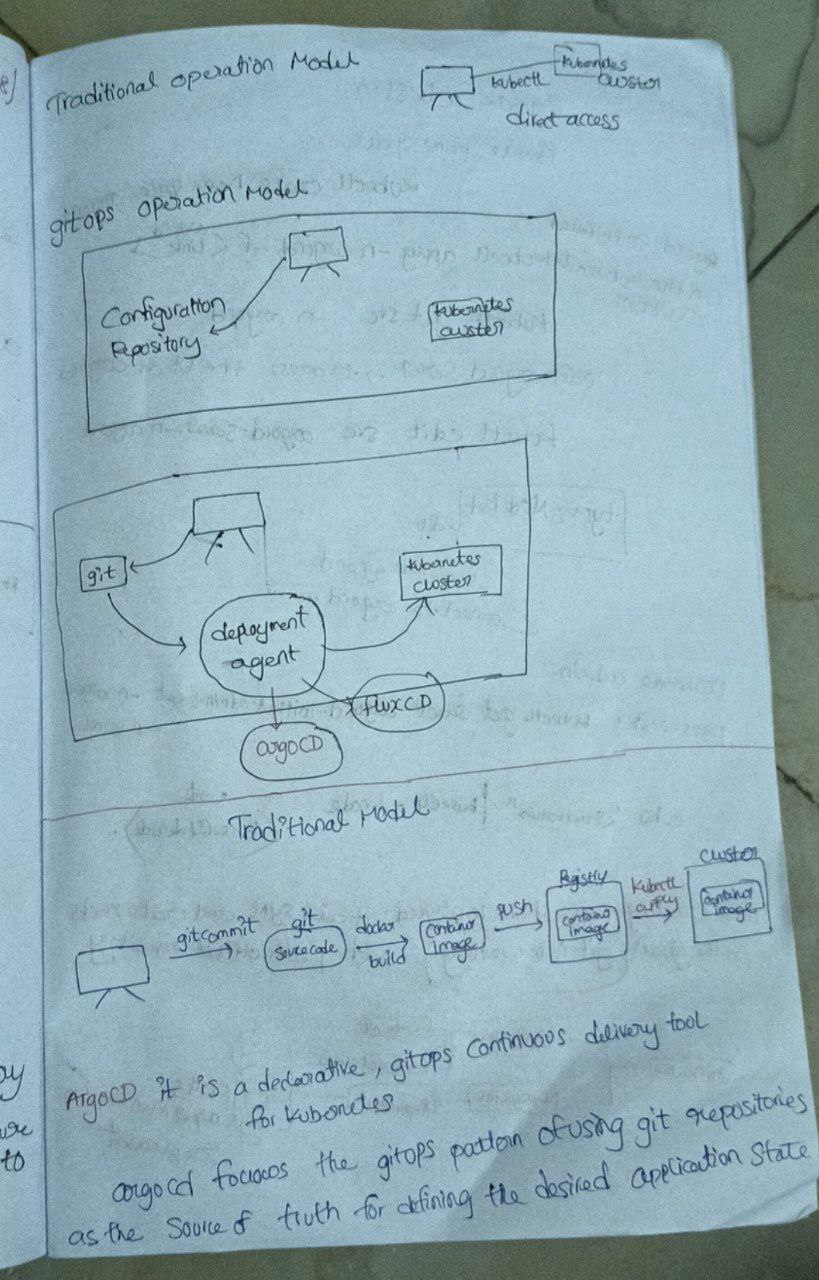 Traditional operation Model
Kubernetes
cluster
kubectl
direct access
gitops operation Model
Configuration
Repository
Kubernetes
cluster
git
kubanetes
cluster
deployment
agent
fluxCD
argoCD
Traditional Model
git commit
git
source code
docker
build
container
image
push
Registry
container
image
kubectl
apply
cluster
container
image
ArgoCD it is a declarative, gitops continuous delivery tool
for kubernetes
argocd focuses the gitops pattern of using git repositories
as the source of truth for defining the desired application state